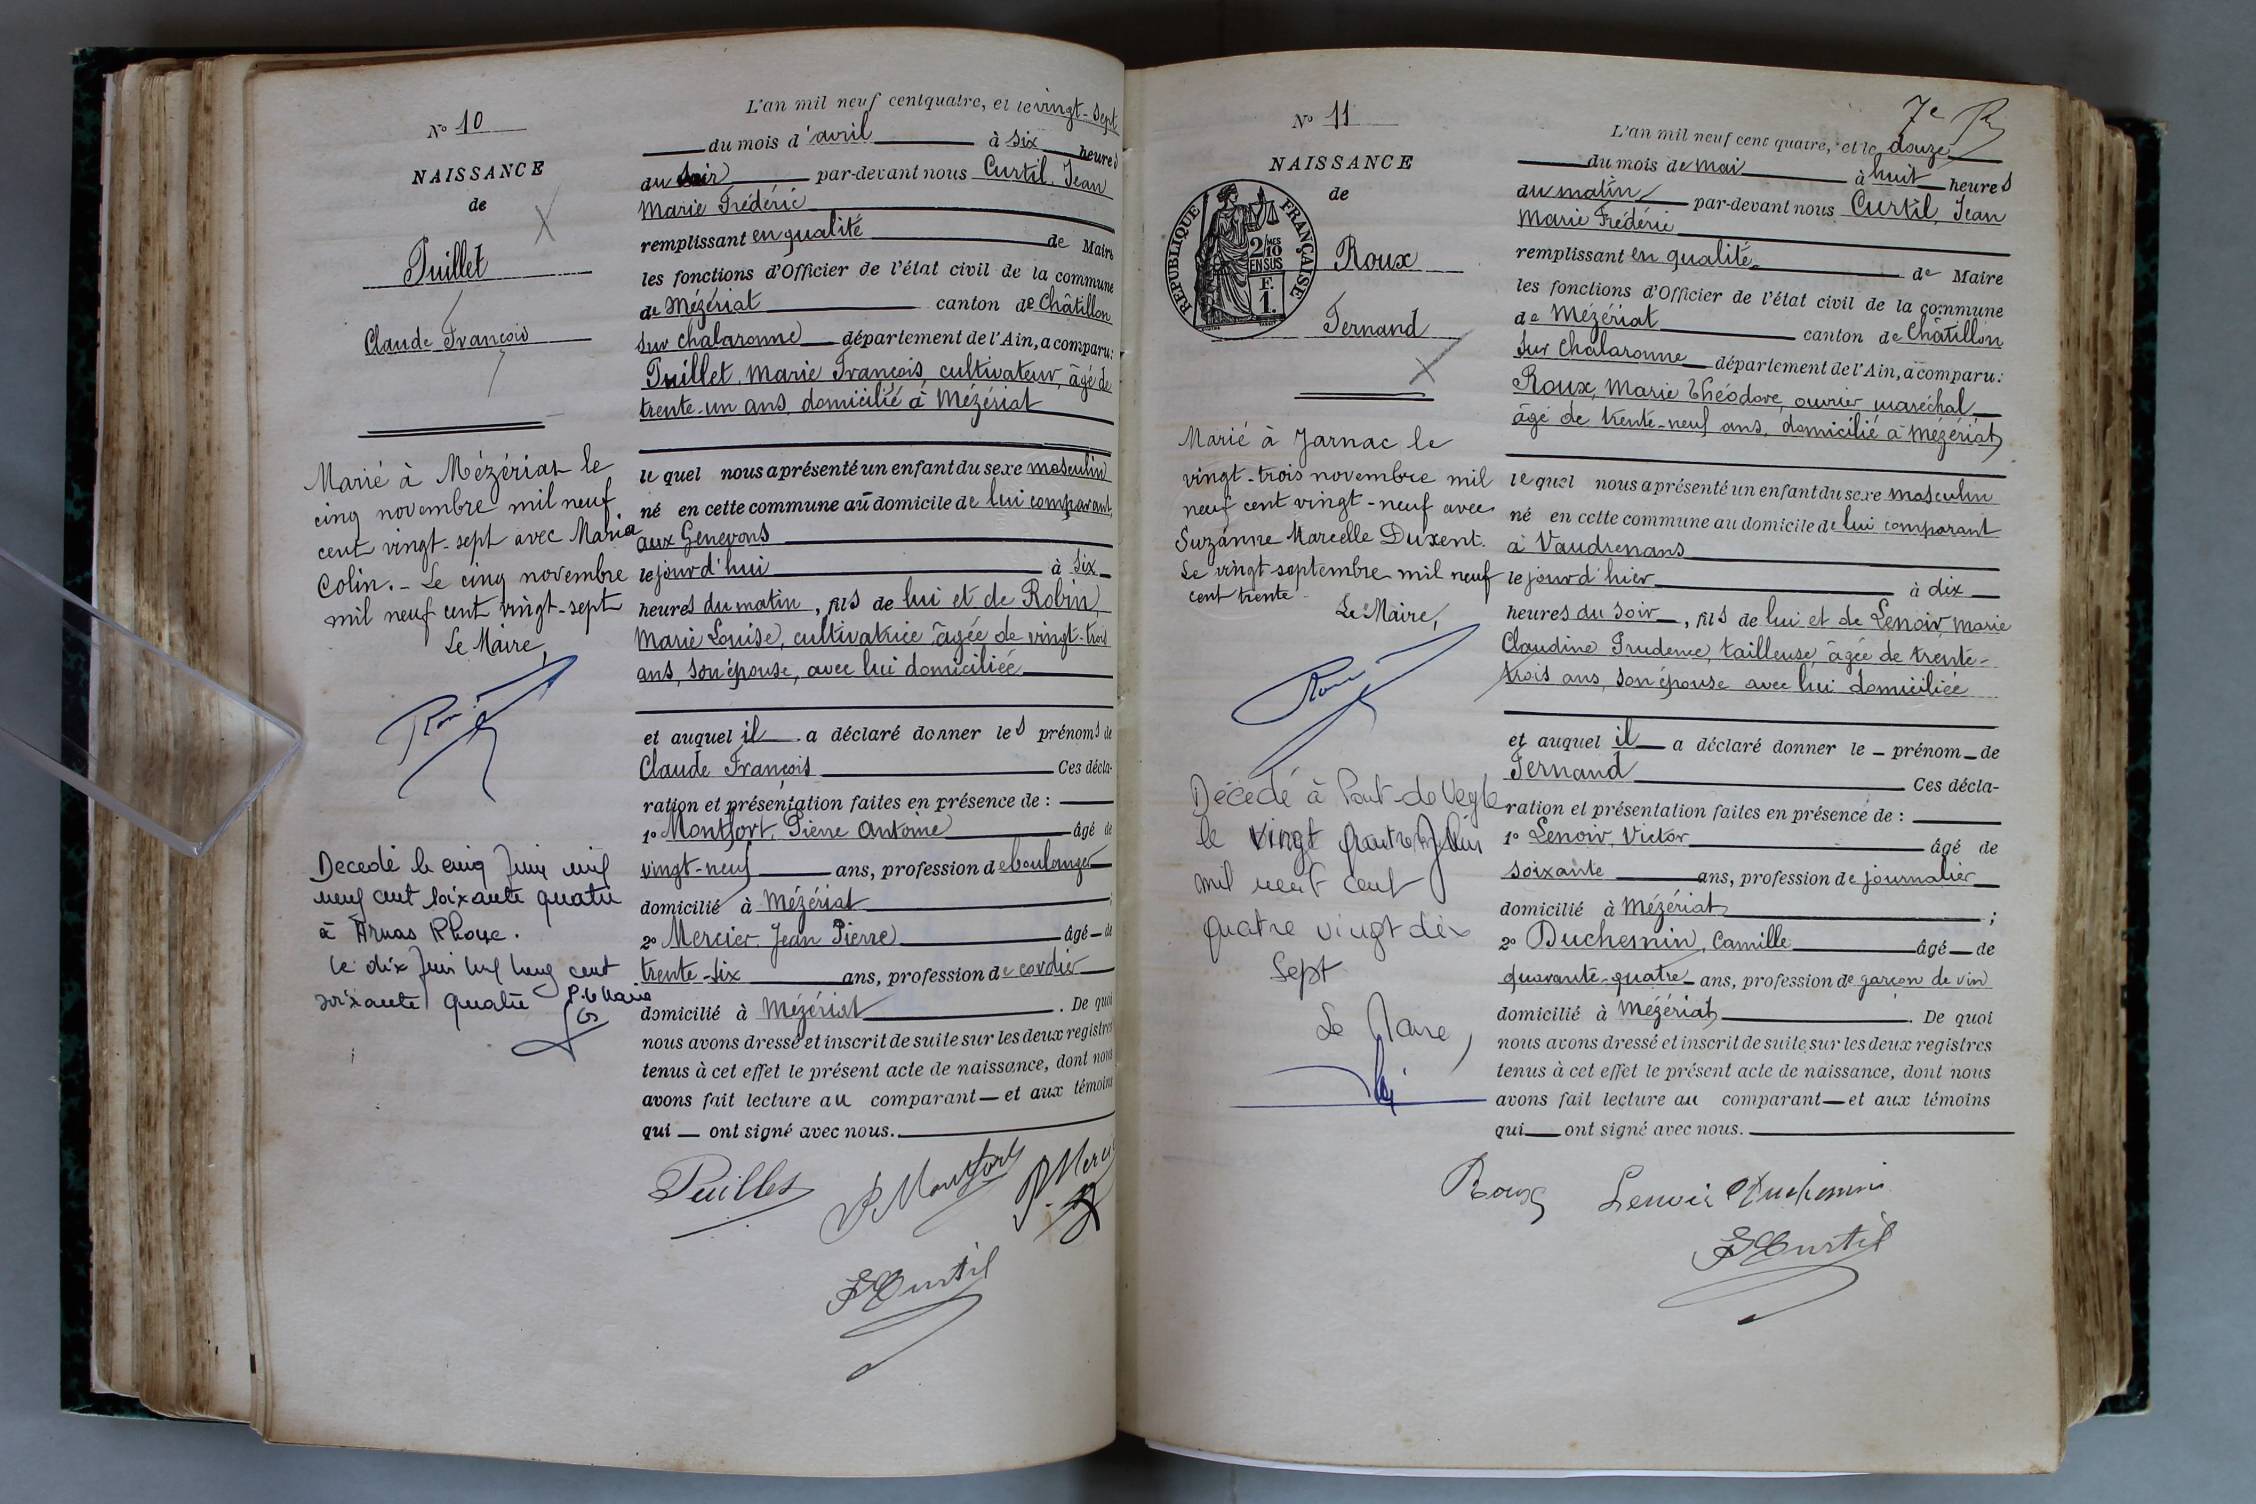 N° 10
NAISSANCE
de
Puillet
Claude François
Marié à Mézériat le
cinq novembre mil neuf
cent vingt-sept avec Maria
Colin. - Le cinq novembre
mil neuf cent vingt-sept
Le Maire,
Decedé le cinq Juin mil
neuf cent soixante quatre
à Arnas Rhone.
le dix Juin mil neuf cent
soixante quatre P. le Maire
L'an mil neuf cent quatre, et le vingt-sept
du mois d'avril à six heures
du soir par-devant nous Curtil, Jean
Marie Frédéric
remplissant en qualité de Maire
les fonctions d'Officier de l'état civil de la commune
de Mézériat canton de Châtillon
sur Chalaronne département de l'Ain, a comparu:
Puillet, Marie François, cultivateur, âgé de
trente-un ans, domicilié à Mézériat
le quel nous a présenté un enfant du sexe masculin
né en cette commune au domicile de lui comparant,
aux Genevons
le jour d'hui à six
heures du matin, fils de lui et de Robin,
Marie Louise, cultivatrice âgée de vingt-trois
ans, son épouse, avec lui domiciliée
et auquel il a déclaré donner les prénoms de
Claude François Ces décla-
ration et présentation faites en présence de :
1° Montfort, Pierre Antoine âgé de
vingt-neuf ans, profession de boulanger
domicilié à Mézériat ;
2° Mercier, Jean Pierre âgé de
trente-six ans, profession de cordier
domicilié à Mézériat . De quoi
nous avons dressé et inscrit de suite sur les deux registres
tenus à cet effet le présent acte de naissance, dont nous
avons fait lecture au comparant et aux témoins
qui ont signé avec nous.
Puillet P Montfort
Curtil
N° 11
NAISSANCE
de
RÉPUBLIQUE FRANÇAISE
2/10 MES
EN SUS
F.
1.
Roux
Fernand
Marié à Jarnac le
vingt-trois novembre mil
neuf cent vingt-neuf avec
Suzanne Marcelle Duxent.
Le vingt septembre mil neuf
cent trente.
Le Maire,
Décédé à Pont-de Veyle
le vingt quatre Juin
mil neuf cent
quatre vingt dix
sept
Le Maire,
7e
L'an mil neuf cent quatre, et le douze
du mois de mai à huit heures
du matin par-devant nous Curtil, Jean
Marie Frédéric
remplissant en qualité de Maire
les fonctions d'Officier de l'état civil de la commune
de Mézériat canton de Châtillon
sur Chalaronne département de l'Ain, a comparu:
Roux, Marie Théodore, ouvrier maréchal
âgé de trente-neuf ans, domicilié à Mézériat
le quel nous a présenté un enfant du sexe masculin
né en cette commune au domicile de lui comparant
à Vaudrenans
le jour d'hier à dix
heures du soir, fils de lui et de Lenoir, Marie
Claudine Prudence, tailleuse, âgée de trente-
trois ans, son épouse avec lui domiciliée
et auquel il a déclaré donner le prénom de
Fernand Ces décla-
ration et présentation faites en présence de :
1° Lenoir, Victor âgé de
soixante ans, profession de journalier
domicilié à Mézériat ;
2° Duchemin, Camille âgé de
quarante-quatre ans, profession de garçon de vin
domicilié à Mézériat . De quoi
nous avons dressé et inscrit de suite sur les deux registres
tenus à cet effet le présent acte de naissance, dont nous
avons fait lecture au comparant et aux témoins
qui ont signé avec nous.
Roux Lenoir Duchemin
Curtil